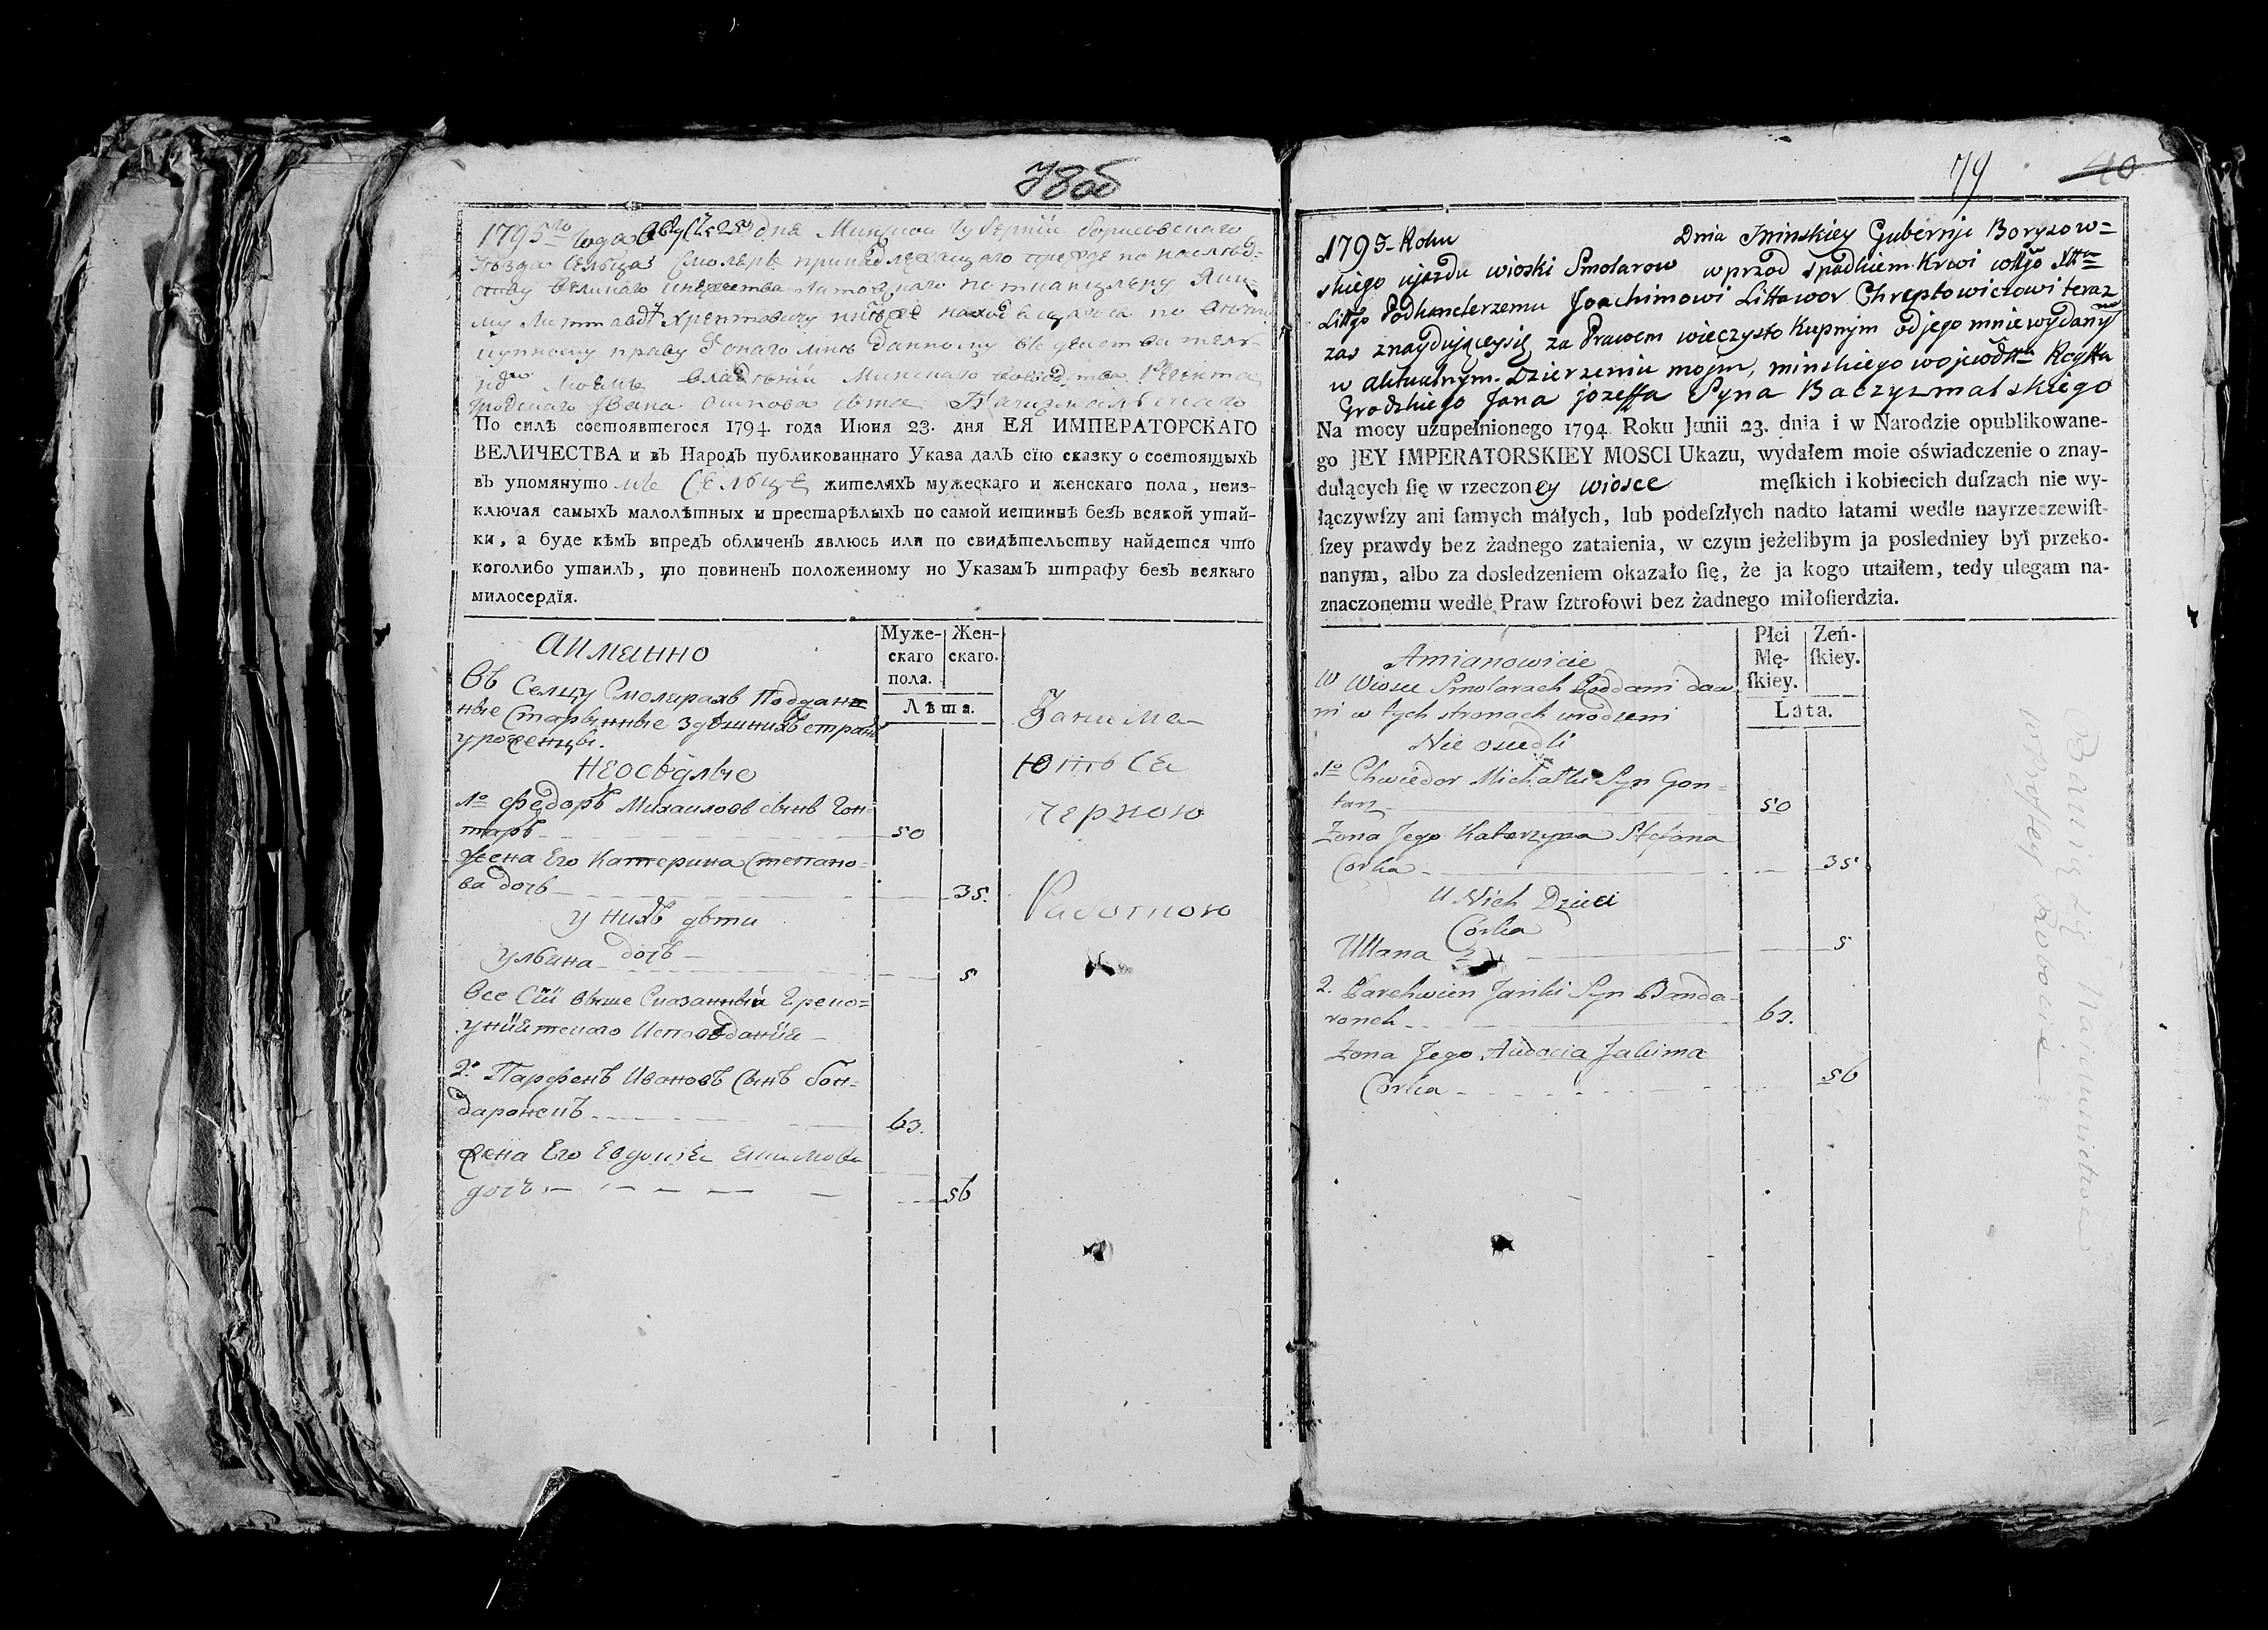 78об
1795го года авгус: 25 дня Минской Губернїи борисовскаго
Уезда Сельца Смоляръ принадлежащаго прежде по наслед-
Великаго Княжества Литовскаго подканцлеру Яки-
му Литтавор Хрептовичу ныне находящагося по
купному праву Данному
Моемъ владенїи Минскаго Регента
гродскаго Ивана Осипова сына
По силѣ состоявшегося 1794 года Июня 23. дня ЕЯ ИМПЕРАТОРСКАГО
ВЕЛИЧЕСТВА и въ Народъ публикованнаго Указа далъ сїю сказку о состоящыхъ
въ упомянутомъ Сельце жителяхъ мужескаго и женскаго пола, неиз-
ключая самыхъ малолѣтныхъ и престарѣлыхъ по самой истиннѣ безъ всякой утай-
ки, а буде кѣмъ впредъ обличенъ явлюсь или по свидѣтельству найдется что
коголибо утаилъ, то повиненъ положенному по Указамъ штрафу безъ всякаго
милосердїя.
Аимянно
Муже-
скаго
пола.
Жен-
скаго.
Лѣта.
Въ Селцу Смолярахъ Поддан-
ные Старынные здѣшнихъ странъ
уроженцы.
Неоседлые
1о Федоръ Михаиловъ сынъ Гон-
таръ 50
Жена Его Катерина Степано-
ва дочь 35.
У нихъ дѣти
Ульяна дочь 5
Все Сїи выше Сказанныя Греко=
унїятскаго Исповѣданїя
2о Парфенъ Ивановъ Сынъ бон-
даронекъ 63.
Жена Его Евдокїя Якимова
дочь 56
Занима-
ютьСя
черною
Работою
79 40
1795-Roku Dnia Minskiey Gubernji Borysow=
skiego ujezdu wioski Smolarow wprzod spadkiem Krwi wllgo Xttwa
Littgo Podkanclerzemu Joachimowi Littawor Chreptowiczowi teraz
zas znaydującysię za Prawem wieczysto Kupnym od jego mnie wydanym
w aktualnym Dzierzeniu mojm, minskiego wojewodttwa Regtta
Grodzkiego Jana jozeffa Syna Baczyzmalskiego
Na mocy uzupełnionego 1794 Roku Junii 23. dnia i w Narodzie opublikowane-
go JEY IMPERATORSKIEY MOSCI Ukazu, wydałem moie oświadczenie o znay-
dulących ſię w rzeczoney wiosce męſkich i kobiecich duſzach nie wy-
łączywſzy ani ſamych małych, lub podeſzłych nadto latami wedle nayrzeczewiſt-
ſzey prawdy bez żadnego zataienia, w czym jeżelibym ja posledniey był przeko-
nanym, albo za dosledzeniem okazało ſię, że ja kogo utaiłem, tedy ulegam na-
znaczonemu wedle Praw ſztrofowi bez żadnego miłoſierdzia.
Amianowicie
Płci
Mę-
ſkiey.
Zeń-
ſkiey.
Lata.
W Wiosce Smolarach Poddani daw
ni w tych stronach urodzeni
Nie osiedli
1o Chwiedor Michałki Syn Gon=
tarz 50
Zona Jego Katarzyna Stefana
Corka 35
U Nich Dzieci
Corka
Ullana 5
2. Parchwien Janki Syn Banda-
ronek 63.
Zona Jego Audocia Jakima
Corka 56
Bawią się Naiemnictwem